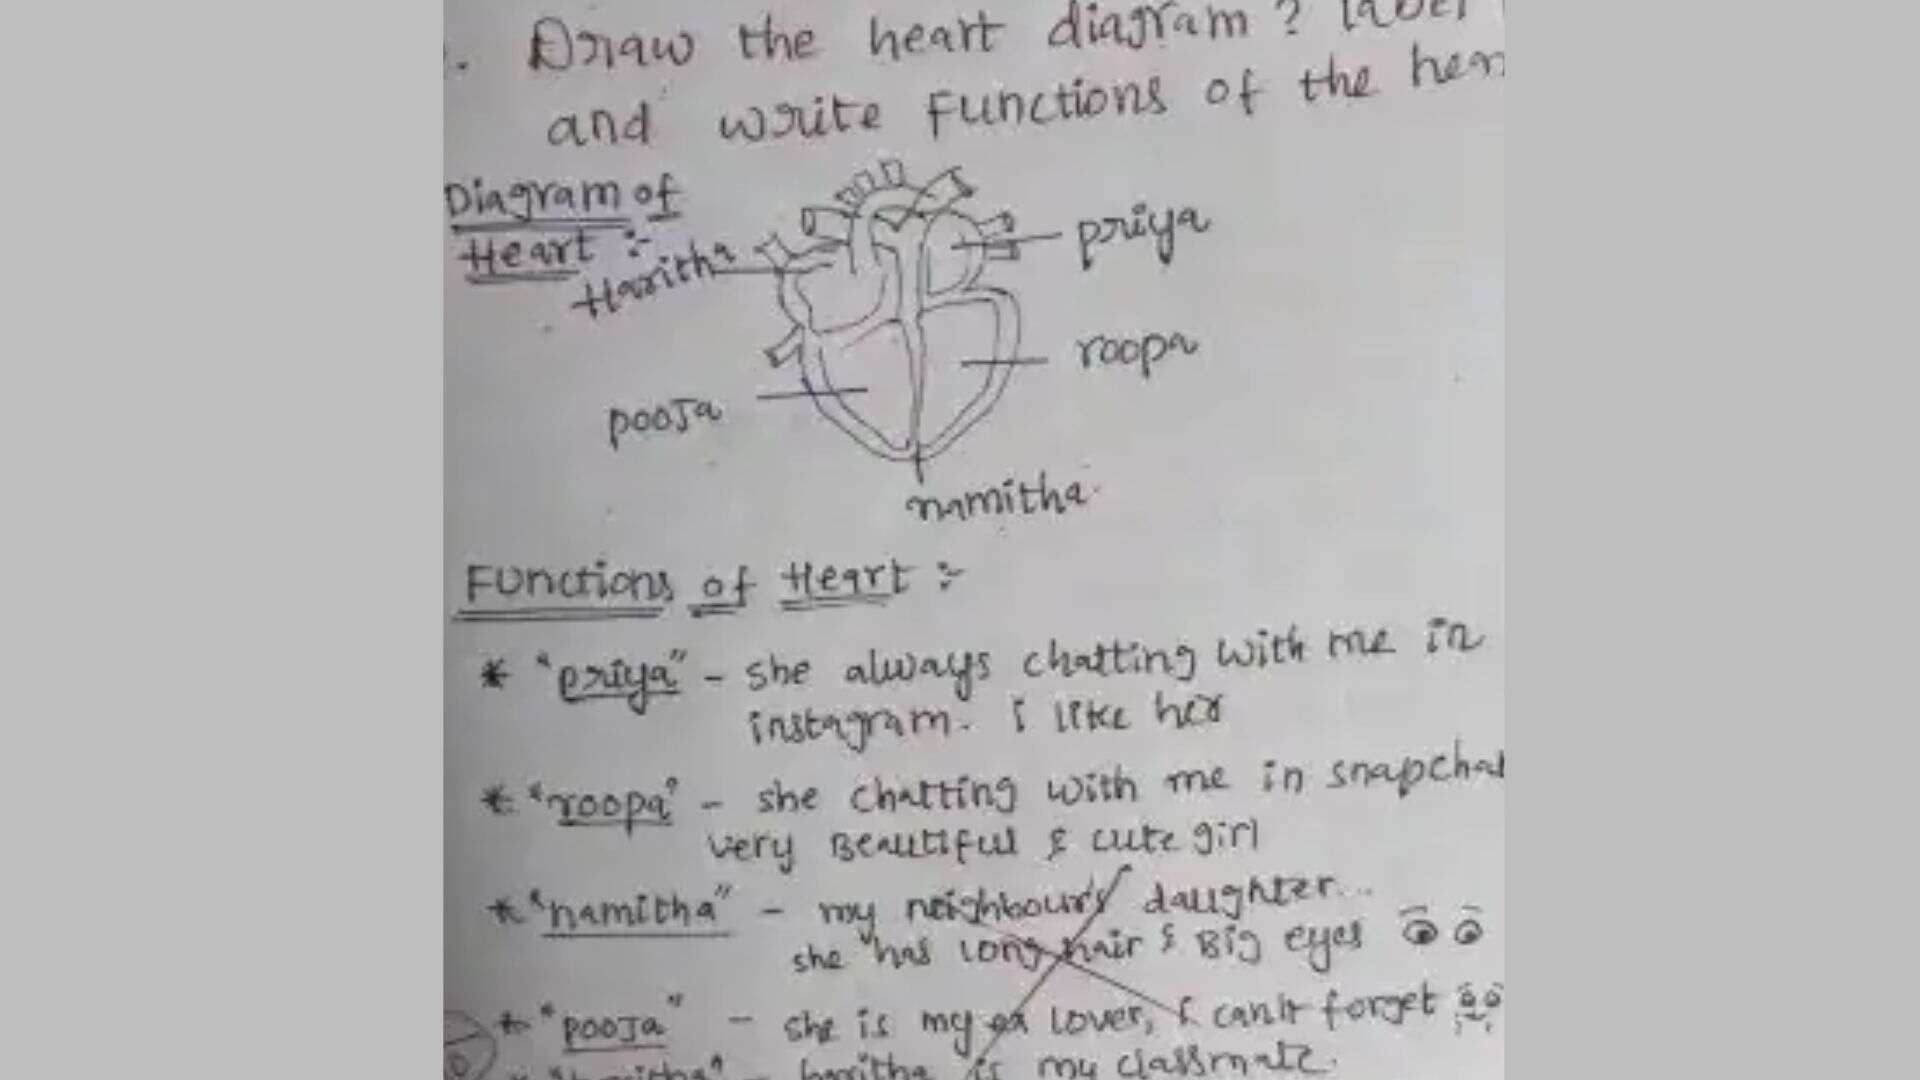 . Draw the heart diagram ? label
and write Functions of the hear
Diagram of
Heart :-
Haritha
priya
roopa
pooJa
namitha.
Functions of Heart :-
* "priya" - she always chatting with me in
instagram. i like her
* "roopa" - she chatting with me in snapchat
very Beautiful & cute girl
* "namitha" - my neighbour's daughter...
she has long hair & Big eyes
* "pooJa" - she is my ex lover, I can't forget
haritha is my classmate.